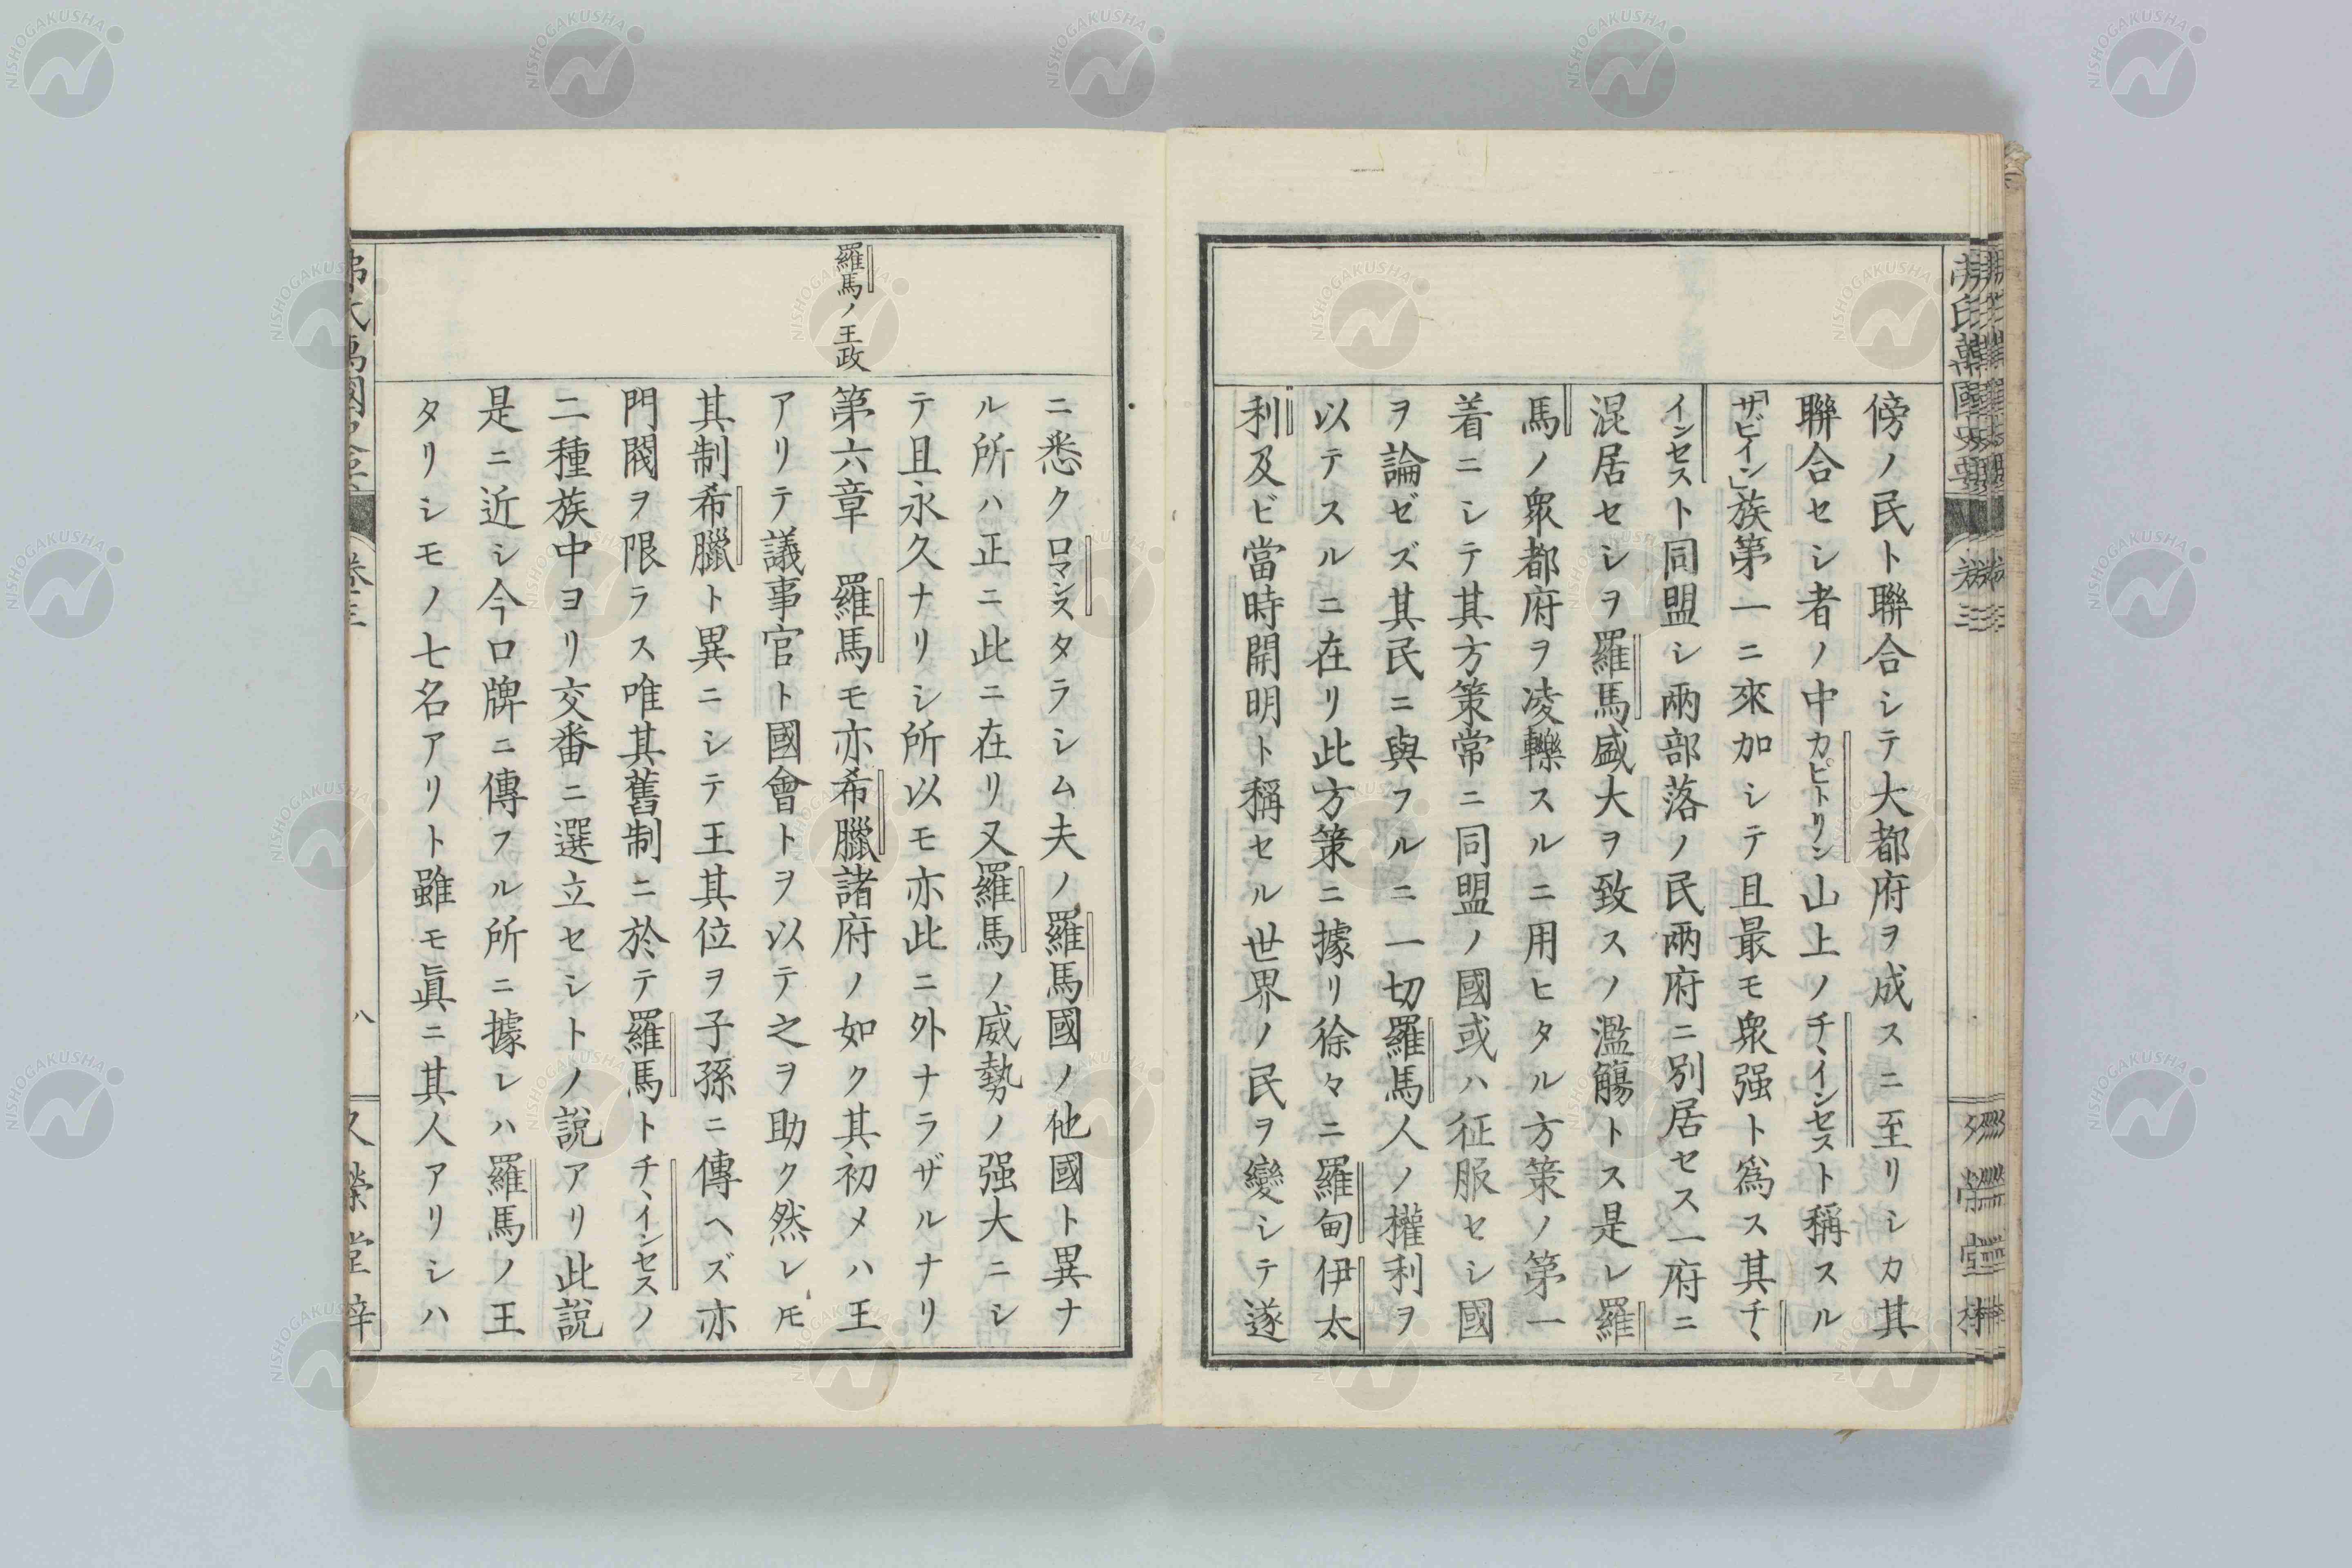 傍ノ民ト聯合シテ大都府ヲ成スニ至リシカ其
聯合セシ者ノ中カピトリン山上ノチ、インセスト稱スル
「サビイン」族第一ニ來加シテ且最モ衆强ト爲ス其チ、
インセスト同盟シ兩部落ノ民兩府ニ別居セス一府ニ
混居セシヲ羅馬盛大ヲ致スノ濫觴トス是レ羅
馬ノ衆都府ヲ凌轢スルニ用ヒタル方策ノ第一
着ニシテ其方策常ニ同盟ノ國或ハ征服セシ國
ヲ論ゼズ其民ニ與フルニ一切羅馬人ノ權利ヲ
以テスルニ在リ此方策ニ據リ徐々ニ羅甸伊太
利及ビ當時開明ト稱セル世界ノ民ヲ變シテ遂
ニ悉クロマンスタラシム夫ノ羅馬國ノ他國ト異ナ
ル所ハ正ニ此ニ在リ又羅馬ノ威勢ノ强大ニシ
テ且永久ナリシ所以モ亦此ニ外ナラザルナリ
羅馬ノ王政
第六章 羅馬モ亦希臘諸府ノ如ク其初メハ王
アリテ議事官ト國會トヲ以テ之ヲ助ク然レ𪜈
其制希臘ト異ニシテ王其位ヲ子孫ニ傳ヘズ亦
門閥ヲ限ラス唯其舊制ニ於テ羅馬トチ、インセスノ
二種族中ヨリ交番ニ選立セシトノ說アリ此說
是ニ近シ今口牌ニ傳フル所ニ據レハ羅馬ノ王
タリシモノ七名アリト雖モ眞ニ其人アリシハ
八